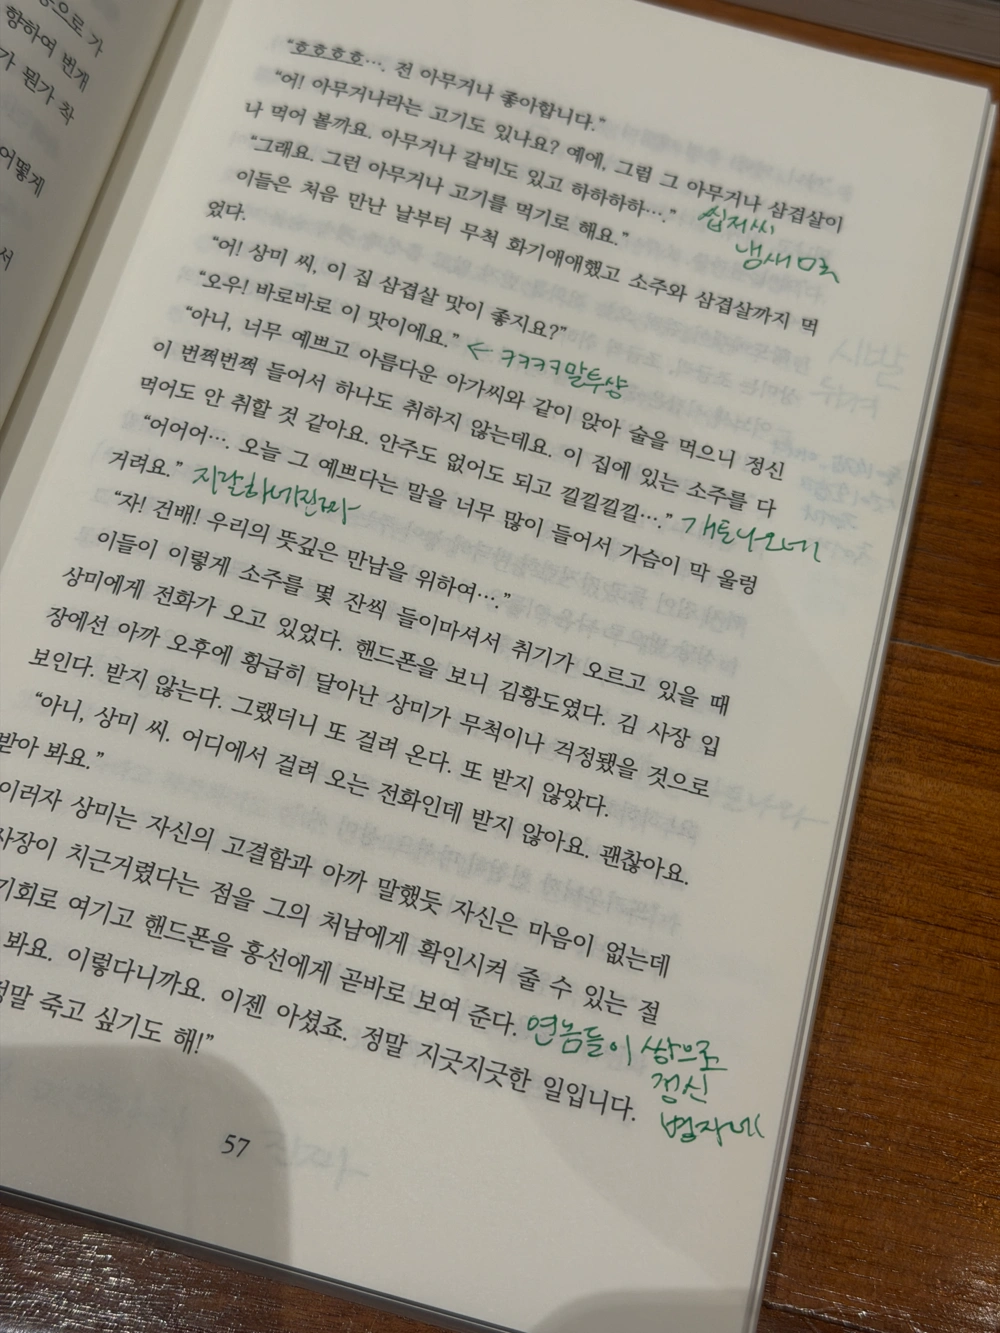 향하여 번개
가 뭔가 착
어떻게
서
“호호호호…. 전 아무거나 좋아합니다.”
“어! 아무거나라는 고기도 있나요? 예에, 그럼 그 아무거나 삼겹살이
나 먹어 볼까요. 아무거나 갈비도 있고 하하하하….”
“그래요. 그런 아무거나 고기를 먹기로 해요.”
냄새
이들은 처음 만난 날부터 무척 화기애애했고 소주와 삼겹살까지 먹
었다.
“어! 상미 씨, 이 집 삼겹살 맛이 좋지요?”
“오우! 바로바로 이 맛이에요.” ← ㅋㅋㅋㅋ말투상
“아니, 너무 예쁘고 아름다운 아가씨와 같이 앉아 술을 먹으니 정신
이 번쩍번쩍 들어서 하나도 취하지 않는데요. 이 집에 있는 소주를 다
먹어도 안 취할 것 같아요. 안주도 없어도 되고 낄낄낄낄….” 개토나오네
“어어어…. 오늘 그 예쁘다는 말을 너무 많이 들어서 가슴이 막 울렁
거려요.” 지랄하네진짜
“자! 건배! 우리의 뜻깊은 만남을 위하여….”
이들이 이렇게 소주를 몇 잔씩 들이마셔서 취기가 오르고 있을 때
상미에게 전화가 오고 있었다. 핸드폰을 보니 김황도였다. 김 사장 입
장에선 아까 오후에 황급히 달아난 상미가 무척이나 걱정됐을 것으로
보인다. 받지 않는다. 그랬더니 또 걸려 온다. 또 받지 않았다.
“아니, 상미 씨. 어디에서 걸려 오는 전화인데 받지 않아요. 괜찮아요.
받아 봐요.”
이러자 상미는 자신의 고결함과 아까 말했듯 자신은 마음이 없는데
사장이 치근거렸다는 점을 그의 처남에게 확인시켜 줄 수 있는 절
기회로 여기고 핸드폰을 홍선에게 곧바로 보여 준다.
봐요. 이렇다니까요. 이젠 아셨죠. 정말 지긋지긋한 일입니다.
정말 죽고 싶기도 해!”
연놈들이 쌍으로
정신
병자네
57